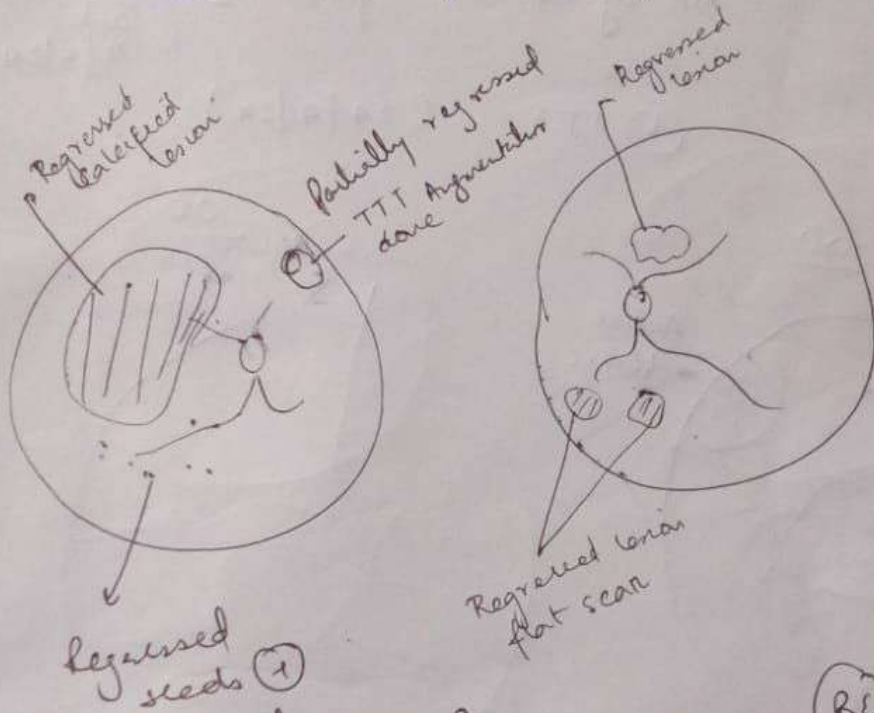 Regressed
calcified
lesion
Partially regressed
TTT Augmentation
done
Regressed
lesion
Regressed lesion
flat scar
Regressed
seeds +